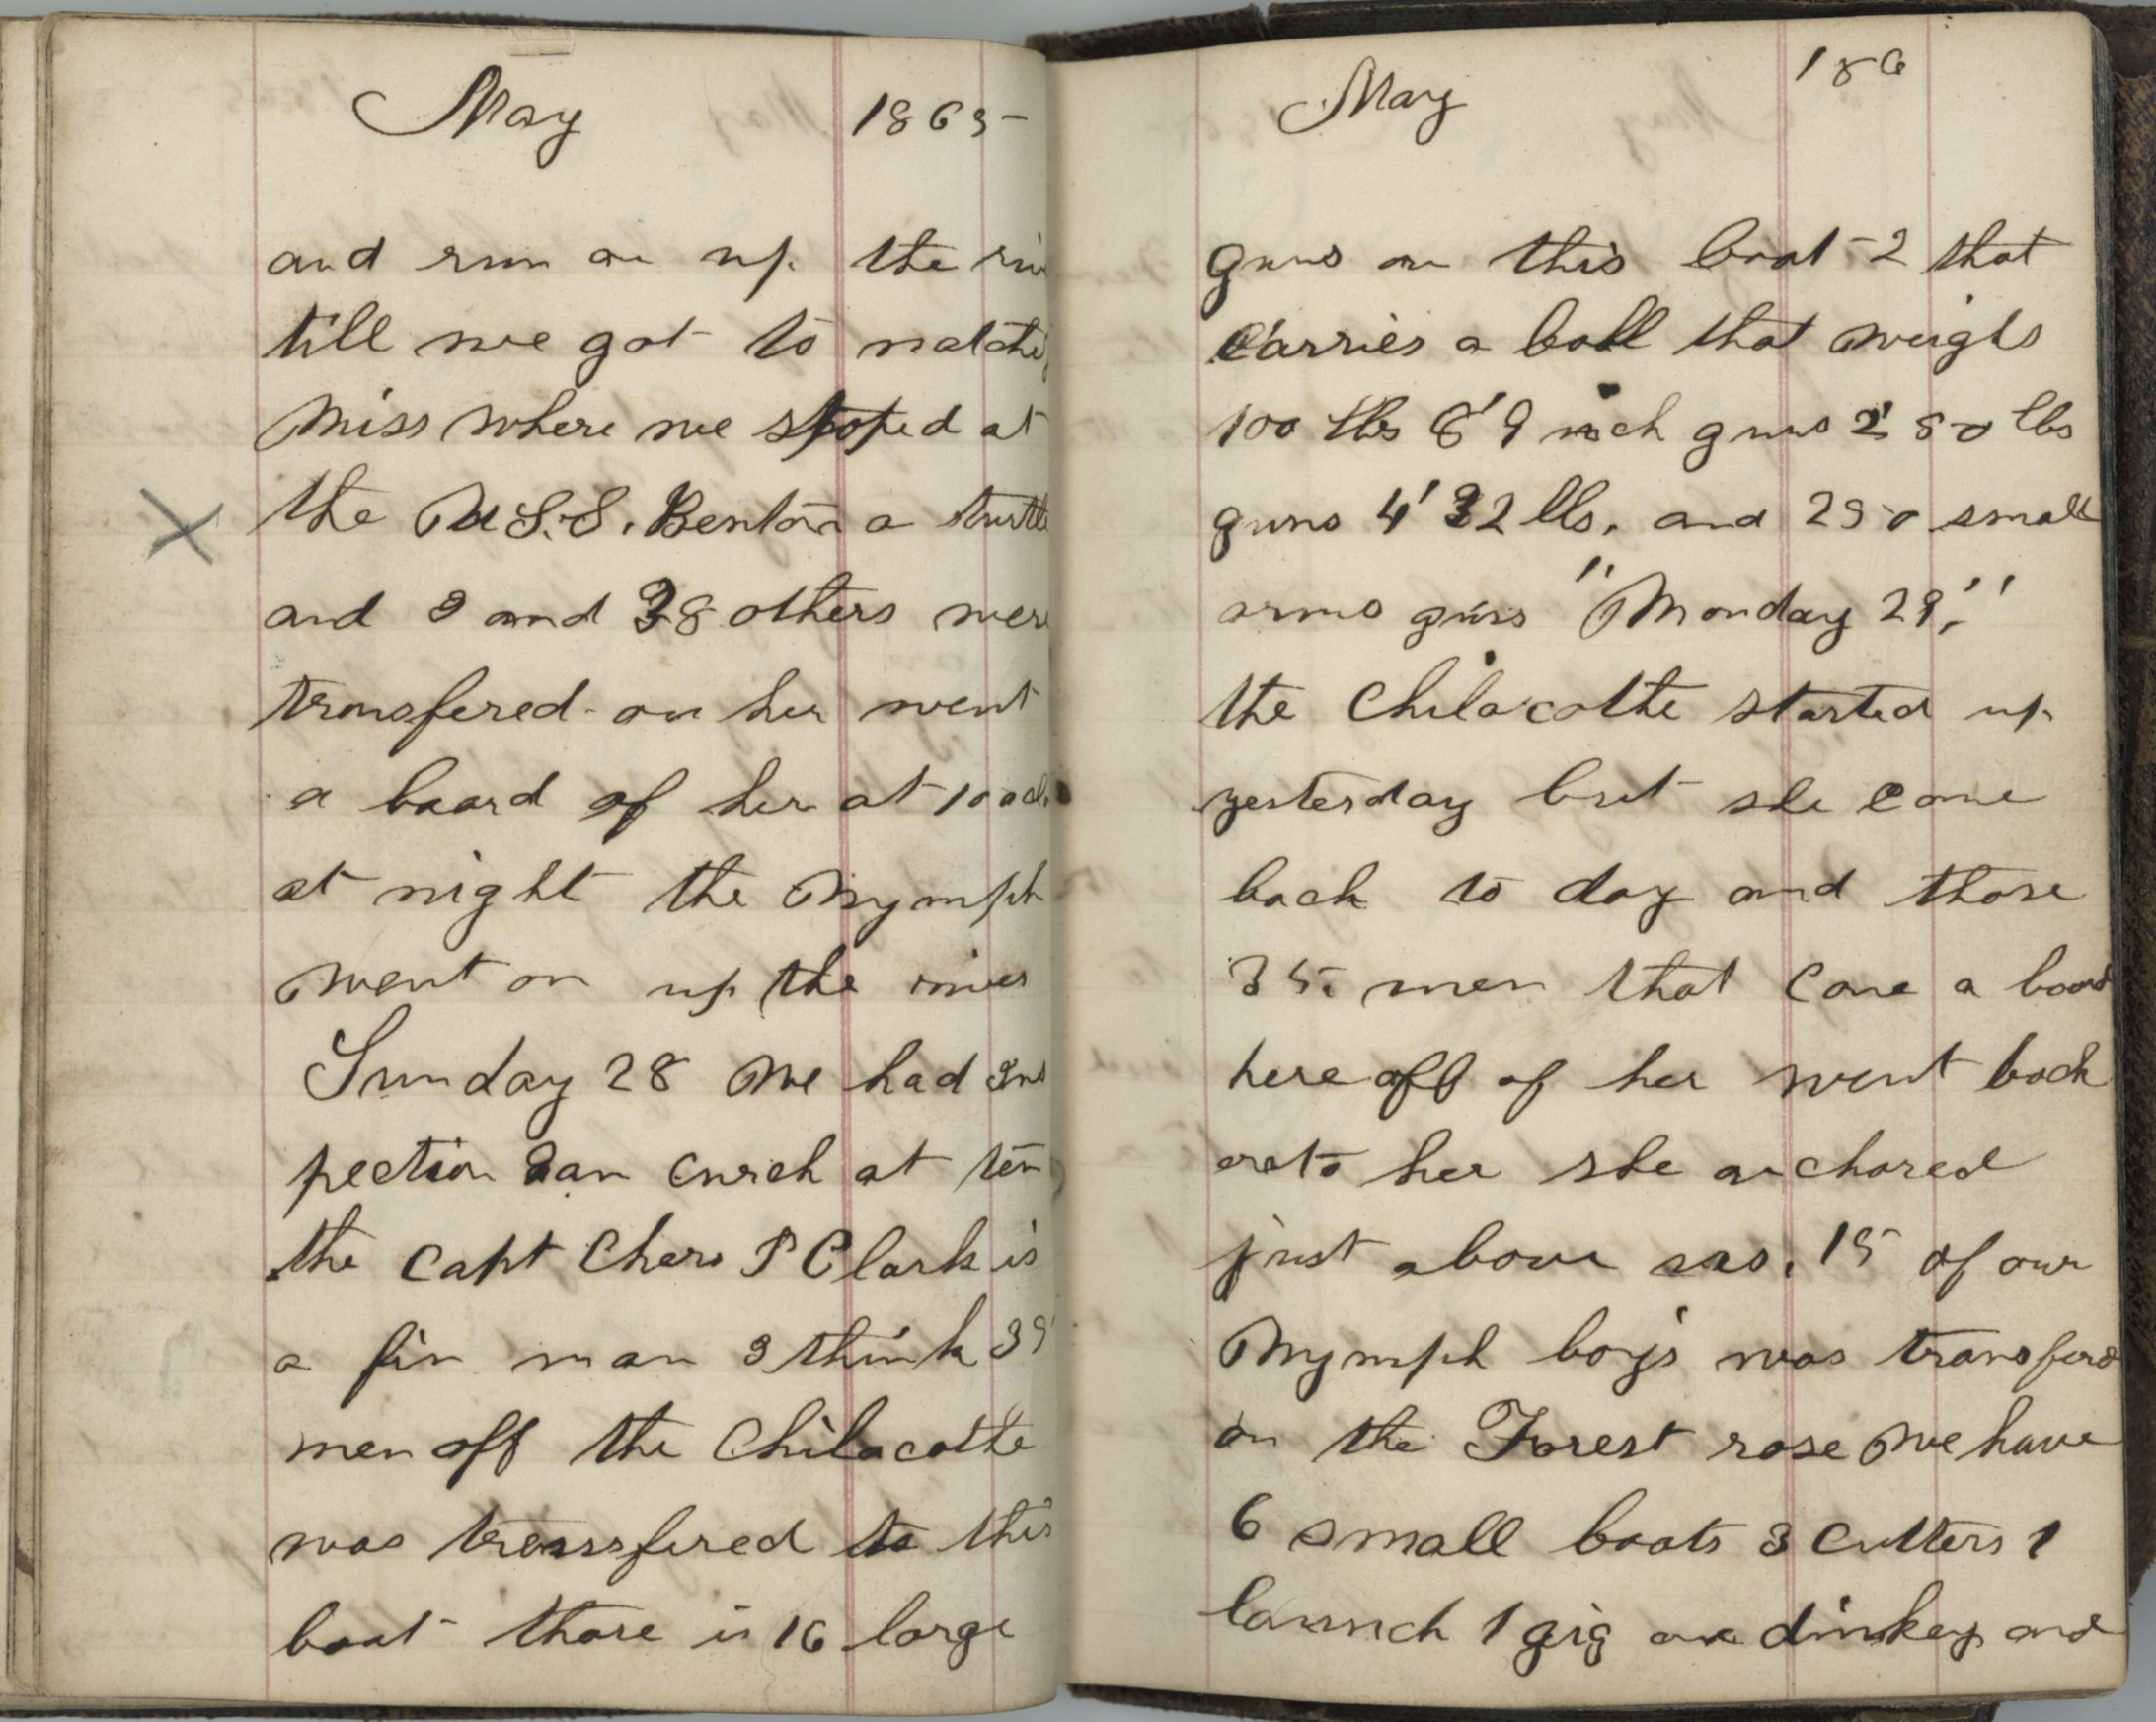 May 1865
and run on up the riv
till we got to natchi
Miss where we stoped at
the U.S.S. Benton a turtle
and I and 38 others were
transfered on her went
a board of her at 10 ocl.
at night the Nymph
went on up the river
Sunday 28 We had Ins
pection an curch at ten
the Capt Chers P Clark is
a fin man I think 35
men off the Chilacothe
was transsfered to this
boat thare is 16 large
May 186
guns on this boat 2 that
Carries a ball that weighs
100 lbs 8' 9 inch guns 2' 50 lbs
guns 4' 32 lbs. and 250 small
arms guns "Monday 29."
the Chilacothe started up
yesterday but she come
back to day and thare
35. men that Come a board
here off of her went back
onto her she anchored
just above us. 15 of our
Nymph boy's was transferd
on the Forest rose We have
6 small boats 3 Cutters 1
launch 1 gig one dinkey and